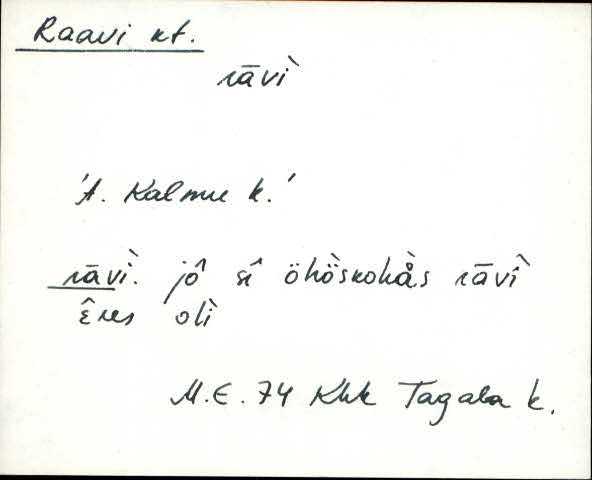 Raavi kt.
rāvì
'A. Kalmu k.'
rāvì. jô sî öhö̀skohås rāvî
êres olì
M.E. 74 Khk Tagala k.